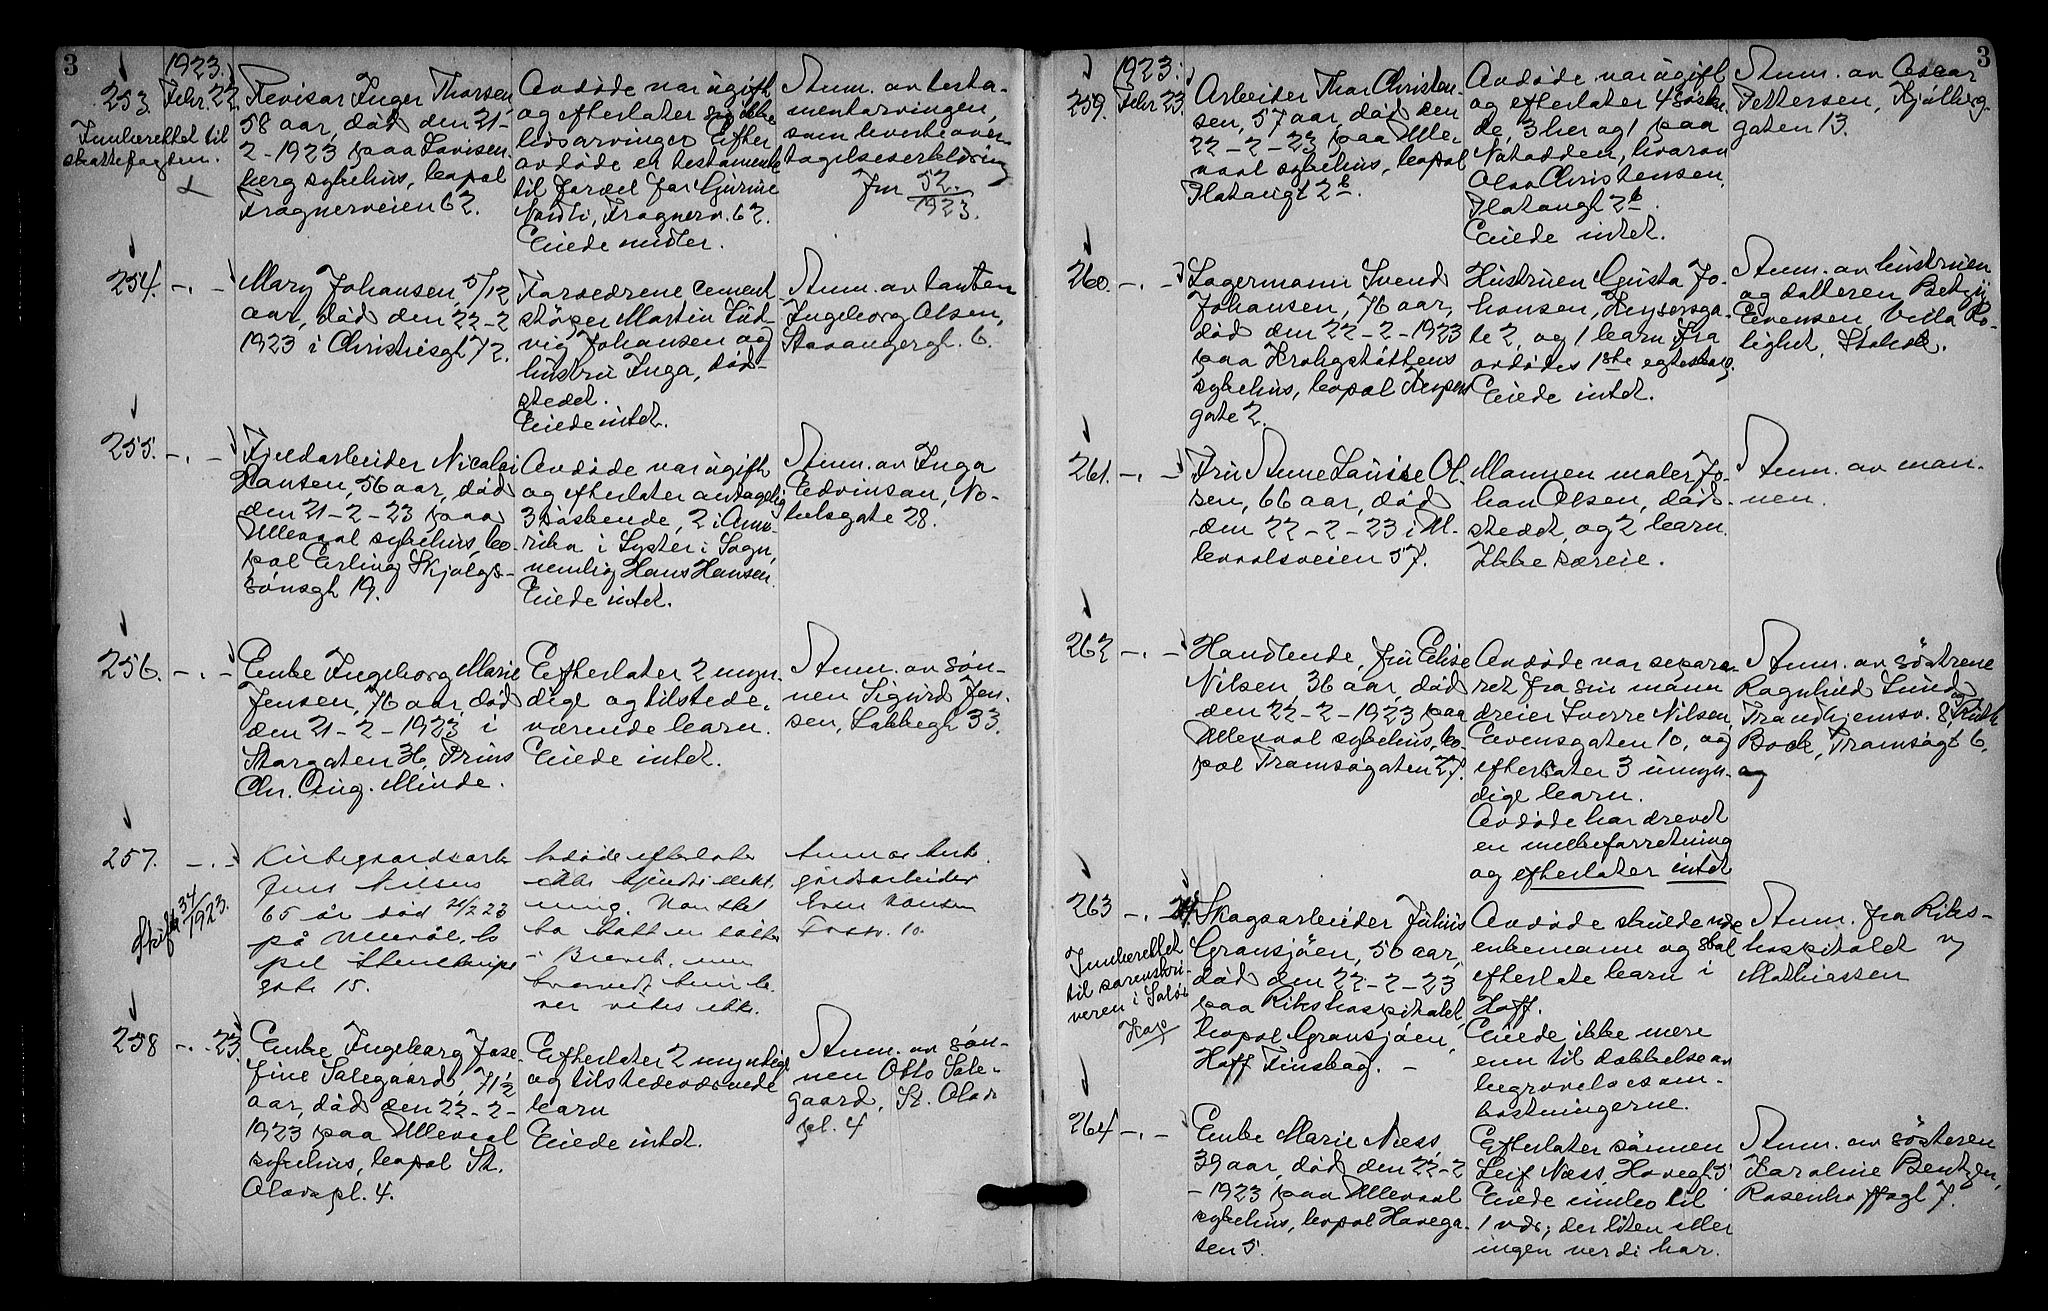 3
1923.
253. Febr. 22.
Indberettet til
skattefogden.
Revisor Inger Thorsen
58 aar, død den 21-
2-1923 paa Lovisen-
berg sykehus, bopæl
Frognerveien 62.
Avdøde var ugift
og efterlater sig ikke
livsarvinger. Efter
avdøde et testamente
til fordel for Gurine
Nordli, Frognerv. 62.
Eiede midler.
Anm. av testa-
mentarvingen,
som leverte over-
tagelseserklæring
Jnr 52.
1923.
254. - . -
Mary Johansen, 5/12
aar, død den 22-2
1923 i Christiesgt 72.
Forældrene cement
støper Martin Lud-
vig Johansen og
hustru Inga, død-
stedet.
Eiede intet.
Anm. av tanten
Ingeborg Olsen,
Stavangergt. 6.
255. - . -
Fjeldarbeider Nicolai
Hansen, 56 aar, død
den 21-2-23 paa
Ullevaal sykehus, bo-
pæl Erling Skjalgs-
sønsgt 19.
Avdøde var ugift
og efterlater antagelig
3 søskende, 2 i Ame-
rika i Lyster i Sogn,
nemlig Hans Hansen.
Eiede intet.
Anm. av Inga
Edvinson, No-
belsgate 28.
256. - . -
Enke Ingeborg Marie
Jensen, 76 aar, død
den 21-2-1923 i
Storgaten 36, Prins
Chr. Aug. Minde.
Efterlater 2 myn-
dige og tilstede-
værende barn.
Eiede intet.
Anm. av søn-
nen Sigurd Jen-
sen, Lakkegt 33.
257. - . -
Skifte 34/1923.
Kirkegaardsarb.
Jens Nilsen
65 år død 21/2 23
på Ullevål, bo-
pel Stenstrups
gate 15.
Avdøde efterlater
ikke kjendt slekt-
ning. Han skal
ha hatt en søster
i Brevik, men
hvorvidt hun le-
ver vites ikke.
Anm av kirke-
gårdsarbeider
Even Hansen
10
258 - . 23.
Enke Ingeborg Jose-
fine Solegaard, 71½
aar, død den 22-2-
1923 paa Ullevaal
sykehus, bopæl St.
Olavspl. 4.
Efterlater 2 myndige
og tilstedeværende
barn
Eiede intet.
Anm. av søn-
nen Otto Sole-
gaard, St. Olavs
pl. 4
3
1923.
259. Febr. 23.
Arbeider Thor Christen-
sen, 57 aar, død den
22-2-23 paa Ulle-
vaal sykehus, bopæl
Platougt 2b.
Avdøde var ugift
og efterlater 4 søsken-
de, 3 her og 1 paa
Notodden, hvorav
Olav Christensen,
Platougt 2b.
Eiede intet.
Anm. av Oscar
Pettersen, Hjolberg-
gaten 13.
260. - . -
Lagermann Svend
Johansen, 76 aar,
død den 22-2-1923
paa Krohgstøttens
sykehus, bopæl Keysers
gate 2.
Hustruen Gusta Jo-
hansen, Keysersga-
te 2, og 1 barn fra
avdødes 1ste egteskap.
Eiede intet.
Anm. av hustruen
og datteren Betzy
Evensen, Villa Ro-
lighet, Stabæk.
261. - . -
Fru Anne Louise Ol-
sen, 66 aar, død
den 22-2-23 i Ul-
levaalsveien 57.
Mannen maler Jo-
han Olsen, død-
stedet, og 2 barn.
Ikke særeie.
Anm. av man-
nen.
262 - . -
Handlende, fru Elise
Nilsen, 36 aar, død
den 22-2-1923 paa
Ullevaal sykehus, bo-
pæl Tromsøgaten 27.
Avdøde var separe-
ret fra sin mann
dreier Sverre Nilsen,
Evensgaten 10, og
efterlater 3 umyn-
dige barn.
Avdøde har drevet
en melkeforretning
og efterlater intet
Anm. av søstrene
Ragnhild Lund,
Trondhjemsv. 8, og Ruth
Bock, Tromsøgt 6,
og
263 - . 24.
Indberettet
til sorenskri-
veren i Solør
Skogsarbeider Julius
Gransjøen, 50 aar,
død den 22-2-23
paa Rikshospitalet,
bopæl Gransjøen,
Hoff Finskog. -
Avdøde skulde være
enkemann og skal
efterlate barn i
Hoff.
Eiede ikke mere
enn til dækkelse av
begravelsesom-
kostningerne.
Anm. fra Riks-
hospitalet v/
Mathiassen
264 - . -
Enke Marie Næss,
39 aar, død den 22-2
-1923 paa Ullevaal
sykehus, bopæl Havega-
ten 5.
Efterlater sønnen
Leif Næss, Havegt. 5
Eiede innbo til
1 vær; der liten eller
ingen verdi har.
Anm. av søsteren
Karoline Bentzen,
Rosenhoffsgt 7.